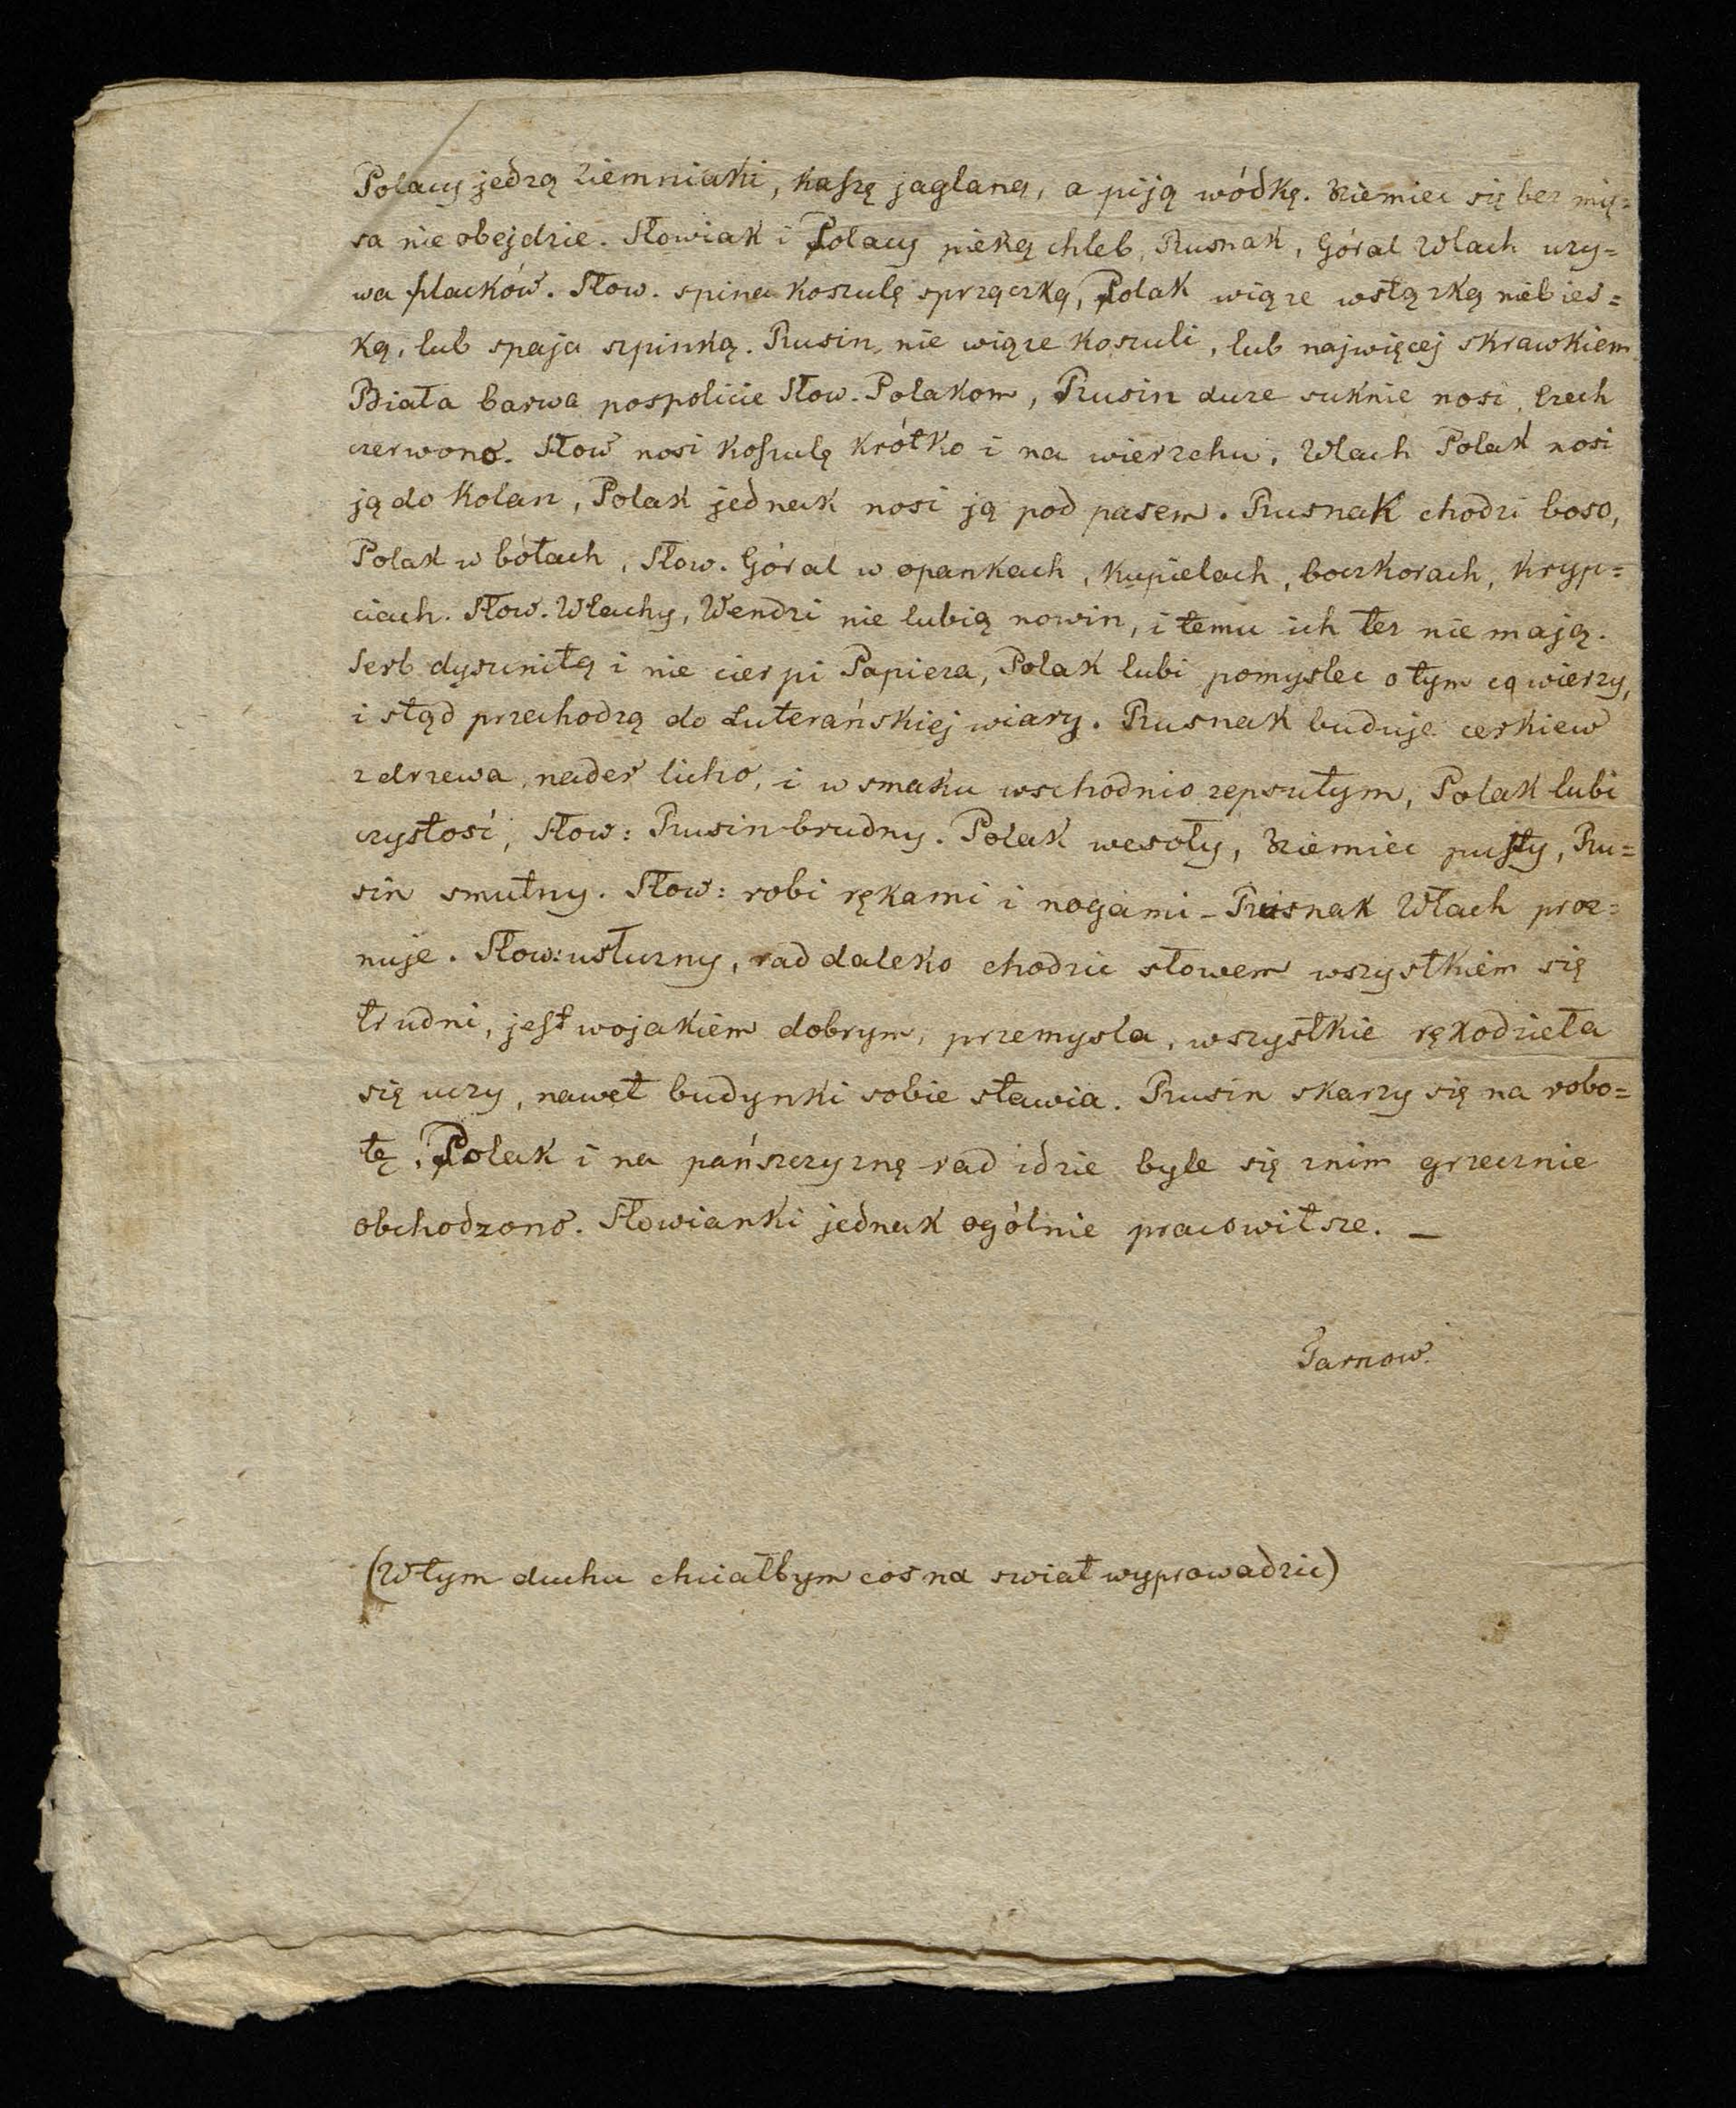 Polacy jedzą ziemniaki, kaszę jaglaną, a piją wódkę. Niemiec się bez mię=
sa nie obejdzie. Słowiak i Polacy pieką chleb, Rusnak, Góral Wlach uzy=
wa placków. Słow. spina koszulę sprzączką, Polak wiąze wstązką niebies=
ką, lub spaja szpinką. Rusin, nie wiąze koszuli, lub najwięcej skrawkiem
Biała barwa pospolicie Słow. Polakom, Rusin duze suknie nosi, Czech
czerwono. Słow nosi koszulę krótko i na wierzchu, Wlach Polak nosi
ją do kolan, Polak jednak nosi ją pod pasem. Rusnak chodzi boso,
Polak w bótach, Słow. Góral w opankach, kupielach, boczkorach, kryp=
ciach. Słow. Wlachy, Wendzi nie lubią nowin, i temu ich tez nie mają.
Serb dysunitą i nie cierpi Papieza, Polak lubi pomyslec o tym cą wierzy,
i stąd przechodzą do Luterańskiej wiary. Rusnak buduje cerkiew
z drzewa, nader licho, i w smaku wschodnio zepsutym, Polak lubi
czystosć, Słow: Rusin brudny. Polak wesoły, Niemiec pusty, Ru=
sin smutny. Słow: robi rękami i nogami - Rusnak Włach proz=
nuje. Słow: usłuzny, rad daleko chodzic słowem wszystkiem się
trudni, jest wojakiem dobrym, przemysla, wszystkie rękodzieła
się uczy, nawet budynki sobie stawia. Rusin skarzy się na robo=
tę, Polak i na pańszczyznę rad idzie byle się znim grzecznie
obchodzono. Słowianki jednak ogólnie pracowitsze. —
Tarnow.
(W tym duchu chciałbym cos na swiat wyprowadzic)